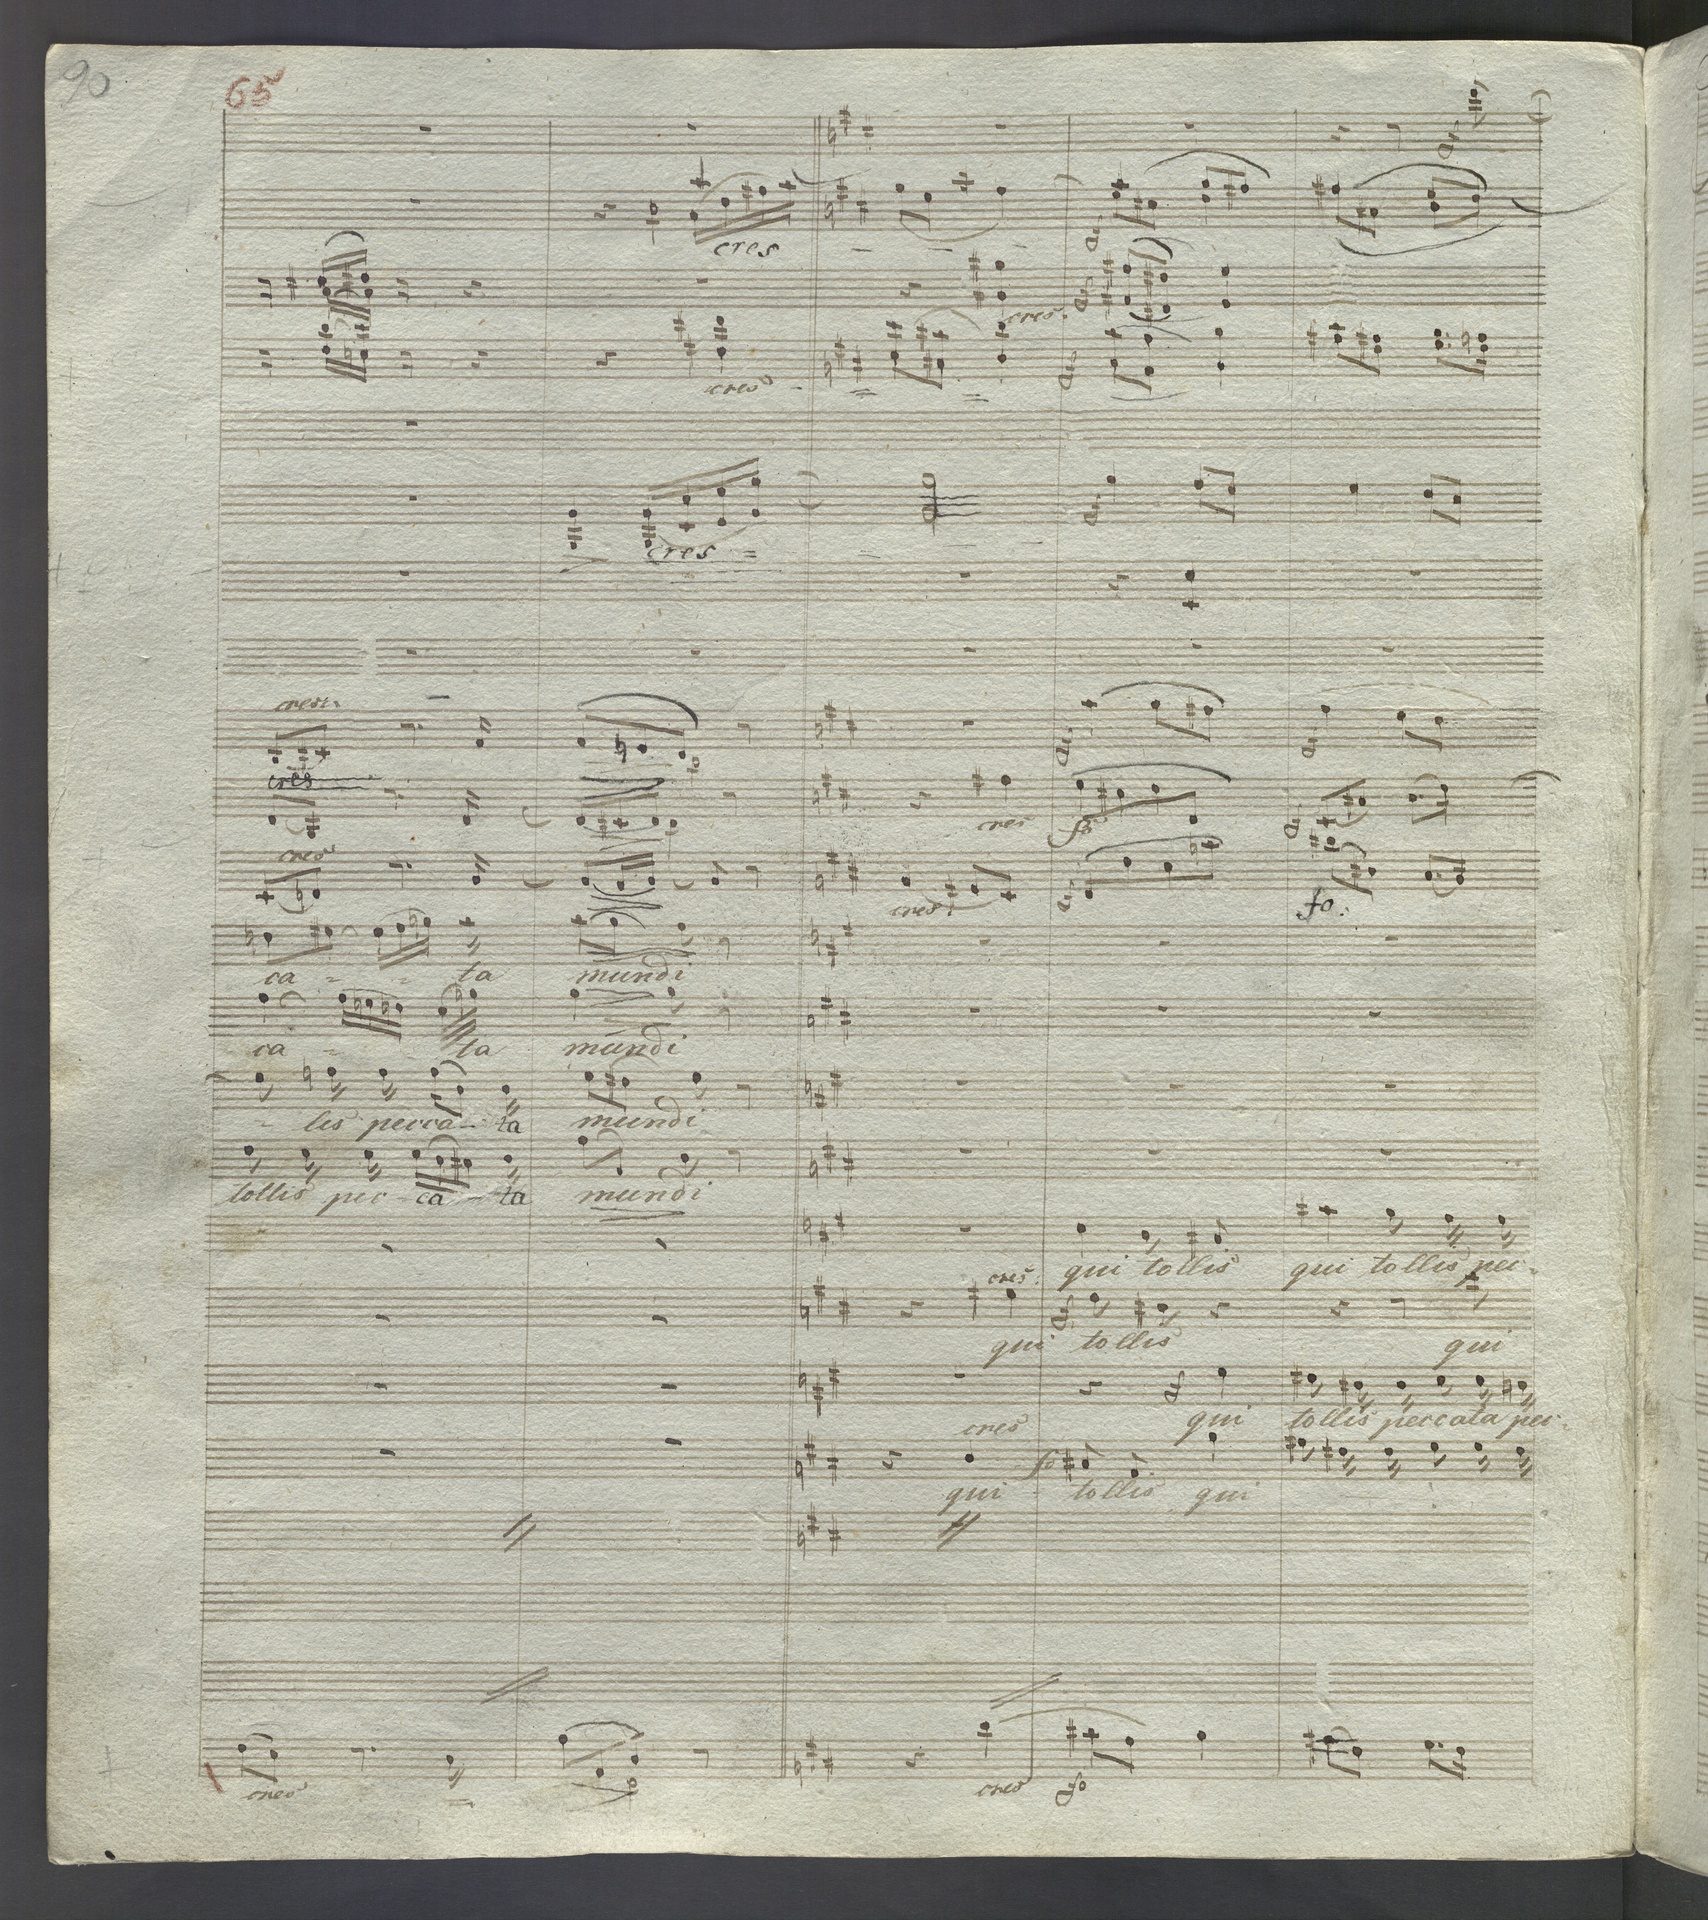 90
65
cres
cres.
cres
cres
cres.
cres
cres
cres fo
cres. fo.
ca - - ta mundi
ca - ta mundi
- lis pecca - ta mundi
tollis pec - ca - ta mundi
qui tollis qui tollis pec -
cres.
qui tollis qui
qui tollis peccata pec -
cres fo
qui - tollis qui
cres cres fo